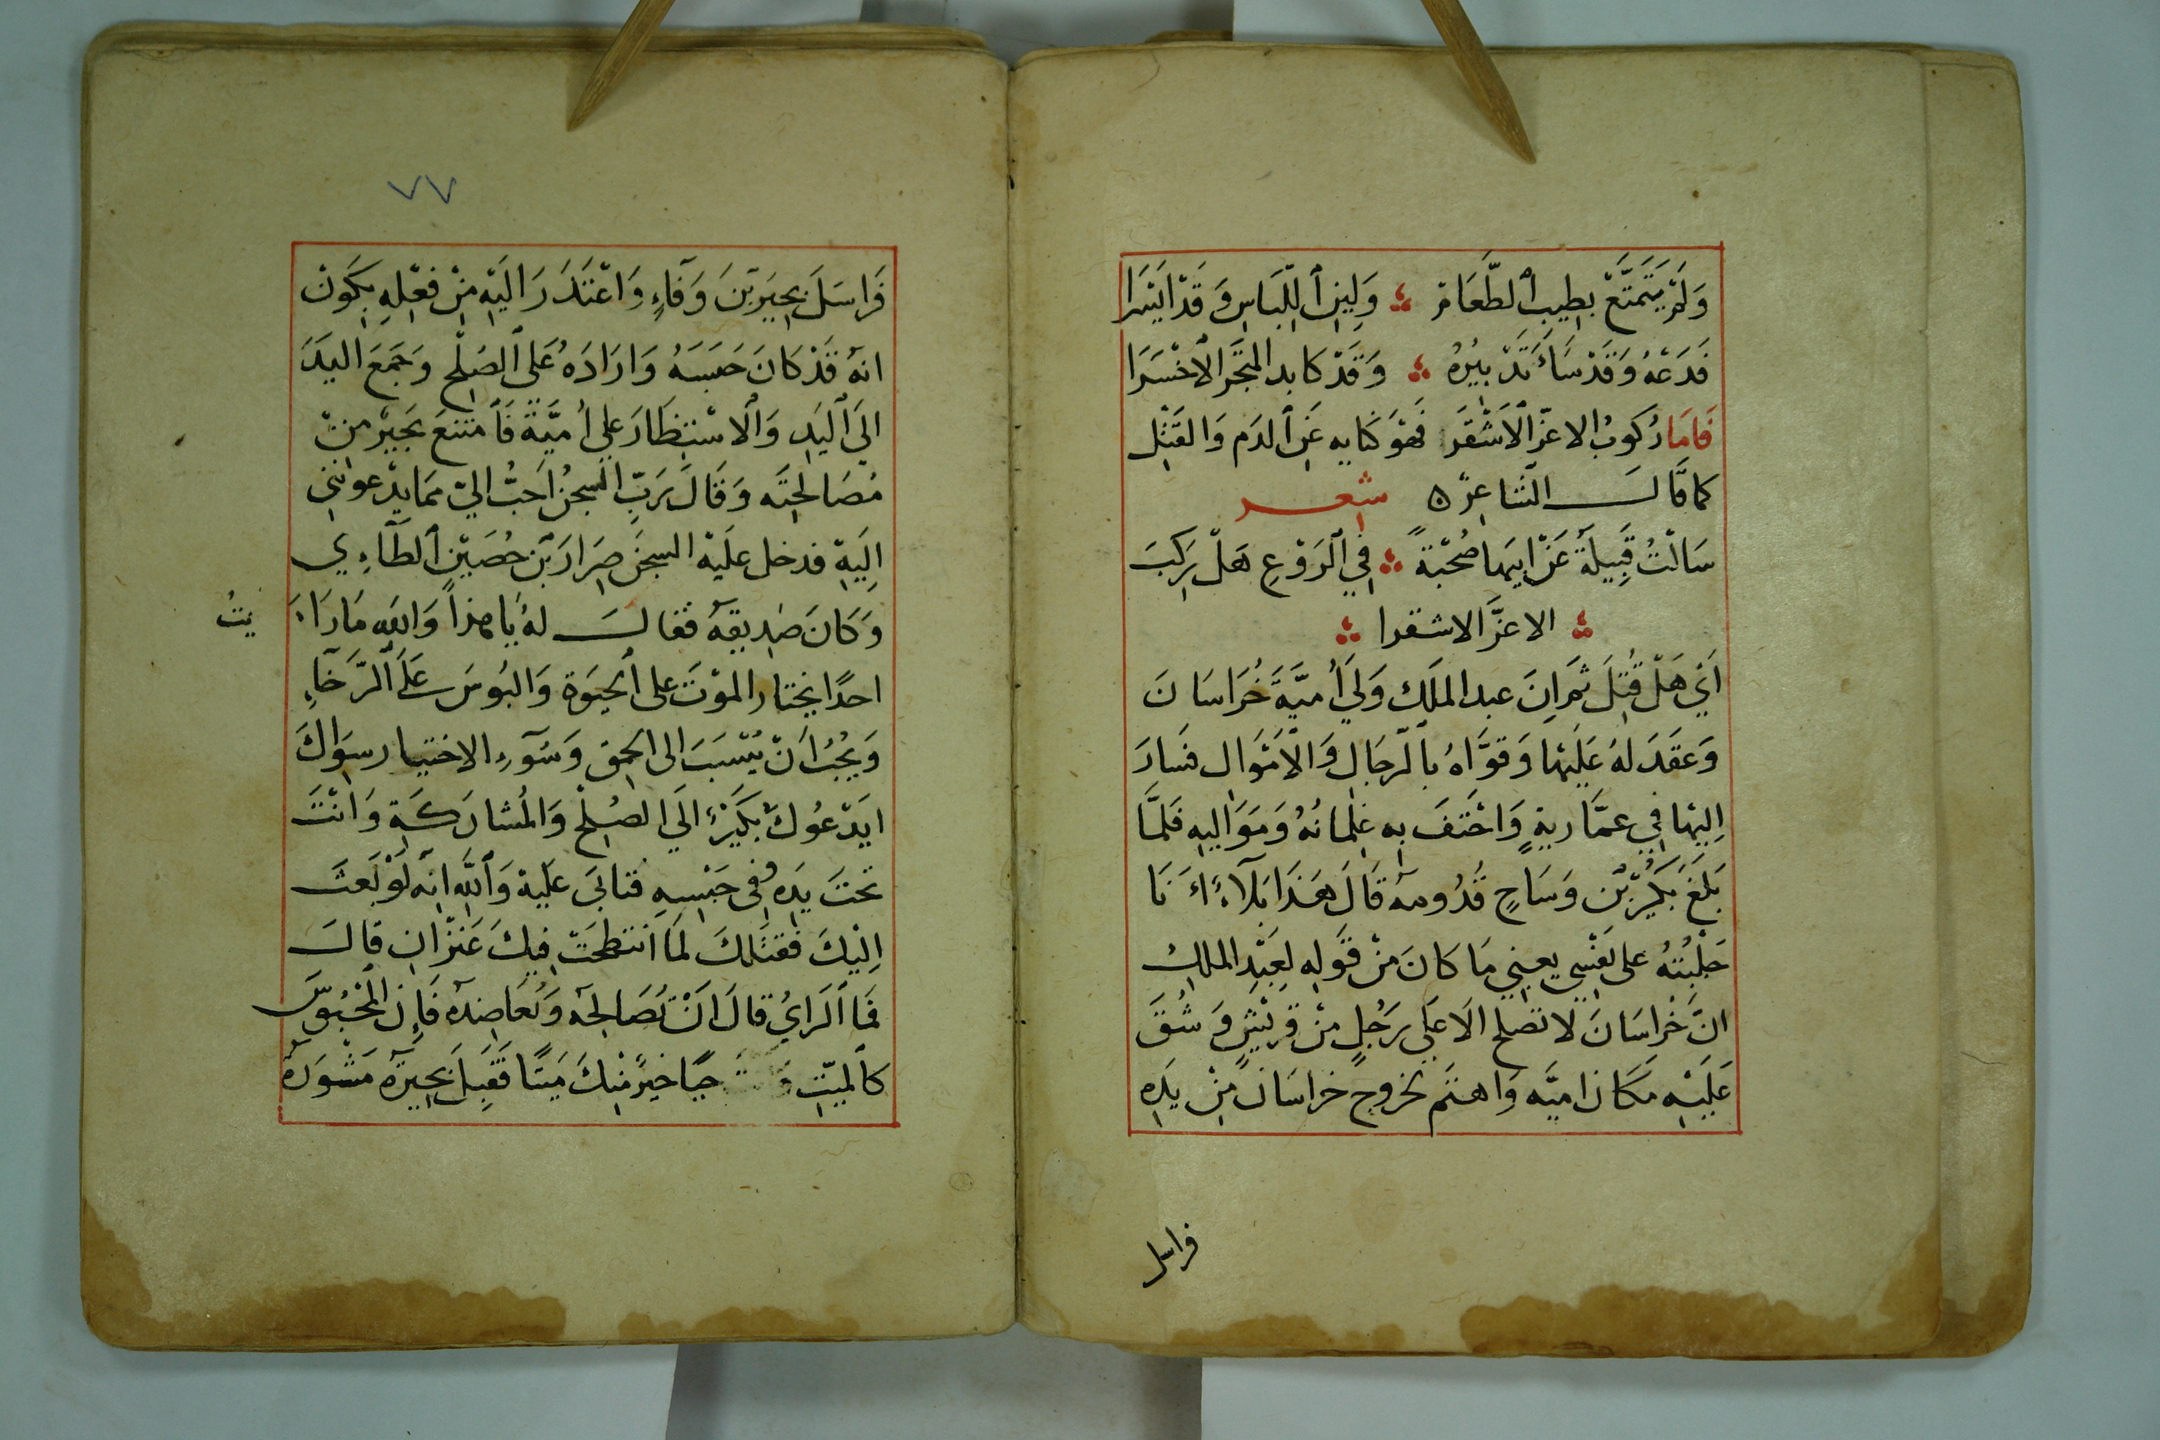 وَلَمْ يَتَمَتَّعْ بِطِيبِ ٱلطَّعَامِ وَلِينِ ٱللِّبَاسِ وَقَدْ اَيْسَرَا
فَدَعْهُ وَقَدْ سَاءَ تَدْبِيْرُهُ وَقَدْ كابد المتجَر الاَخْسَرَا
فَامَا رُكُوبُ الاغرّ الاَشْقَر فَهوَ كنايه عَنِ ٱلدَم وَالقَتْل
كما قَالَ الشَاعِرُ شعر
سَالْتُ قَبِيلَةُ عَنْ ابِيهَا صُحْبَةً فِي ٱلرَوْعِ هَلْ رَكِبَ
الاغرَّ الاشقرا
اَيْ هَلْ قُتِلَ ثمَ اِنَ عبد الملَكِ وَلي اُميَّةَ خُرَاسَانَ
وَعقَدَ لهُ عَلَيْهَا وَقوَّاهُ بِالرّجَالِ وَالاَمْوَال فسَارَ
اِليهَا فِي عمَّاريةٍ وَاحْتَفَ بِهِ غلمَانُهُ وَمَوَاليهِ فَلمَّا
بَلغَ بَكَيْر بْن وَسَاحٍ قدُومهُ قَالَ هَذَا بَلآءٌ اَنَا
جَلَبْتُهُ على نَفْسِي يعني مَا كانَ مِنْ قَولِهِ لِعَبْدِ الملكِ
انَّ خرَاسَانَ لاَ تصلح الاَ عَلَى رَجُلٍ مِنْ قريْشٍ وَشُقَ
عَلَيْهِ مَكان اميَّه وَاهتمَ بخروج خراسَان مِنْ يَدِهِ
فراسل
٧٧
فَرَاسَلَ بحِيَر بْنَ وَقَآءٍ وَاعْتَذَرَ اليْهِ مِنْ فعْلِهِ بكَونْ
انهُ قَدْ كانَ حَبَسَهُ وَارَادَهُ عَلَى ٱلصُلْحِ وَجَمَعَ اليَدَ
الَى ٱليَدِ وَٱلاسْتِظهَار علي اُميَّةَ فَٱمتنعَ بحَيْر مِنْ
مُصَالحَتِه وَقَالَ رَبِّ السجنُ اَحبُّ اليّ ممَا يدْعوننِي
اِلَيهْ فدخل علَيْه السجنَ ضِرَار بْن حُصَيْنٍ ٱلطَّآءِي
وَكَانَ صَدِيقهُ فقالَ لهُ يَا هذا وَالله مَا رَاَ
يتُ
احدًا يختار الموْتَ على ٱلحيوَة وَالبُوسَ عَلَى ٱلرَّخَآءِ
وَيحُبُ اَنْ يُنْسَبَ الى الحمق وَسُوءِ الاختيار سِوَاكَ
ايَدْعُوكَ بكَيْرُ الَي الصُلْح وَالمُشارَكَةِ وَانْتَ
تحتَ يَدِهِ فى حَبْسِهِ فتابَى علَيهْ وَٱللَّهِ انهُ لَوْ بَعثَ
اِليْكَ فقتَلَكَ لَمَا انتطحَتْ فِيكَ عَنْزَان قالَ
فمَا ٱلرَايُ قالَ انْ تُصَالحَهُ وَتُعَاضِدهُ فَاِن المَحْبُوسَ
كالميّتِ حيًا خيْرٌ مِنكَ ميتًا فَقَبِلَ بحِيْر مَشوَرَة